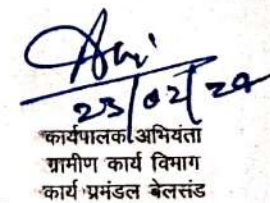 23/02/24
कार्यपालक अभियंता
ग्रामीण कार्य विभाग
कार्य प्रमंडल बेलसंड